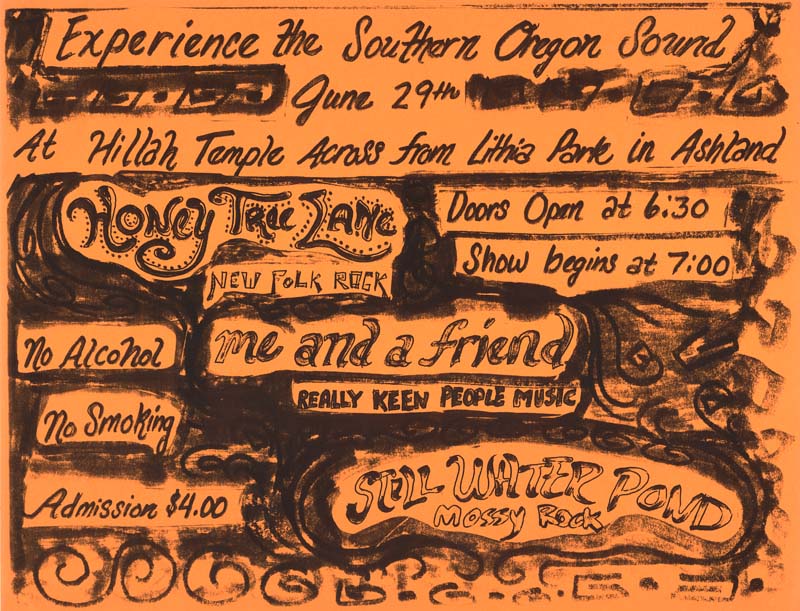 Experience the Southern Oregon Sound
June 29th
At Hillah Temple Across from Lithia Park in Ashland
Honey Tree Lane
NEW FOLK ROCK
Doors Open at 6:30
Show begins at 7:00
No Alcohol
me and a friend
REALLY KEEN PEOPLE MUSIC
No Smoking
Admission $4.00
STILL WATER POND
MOSSY ROCK